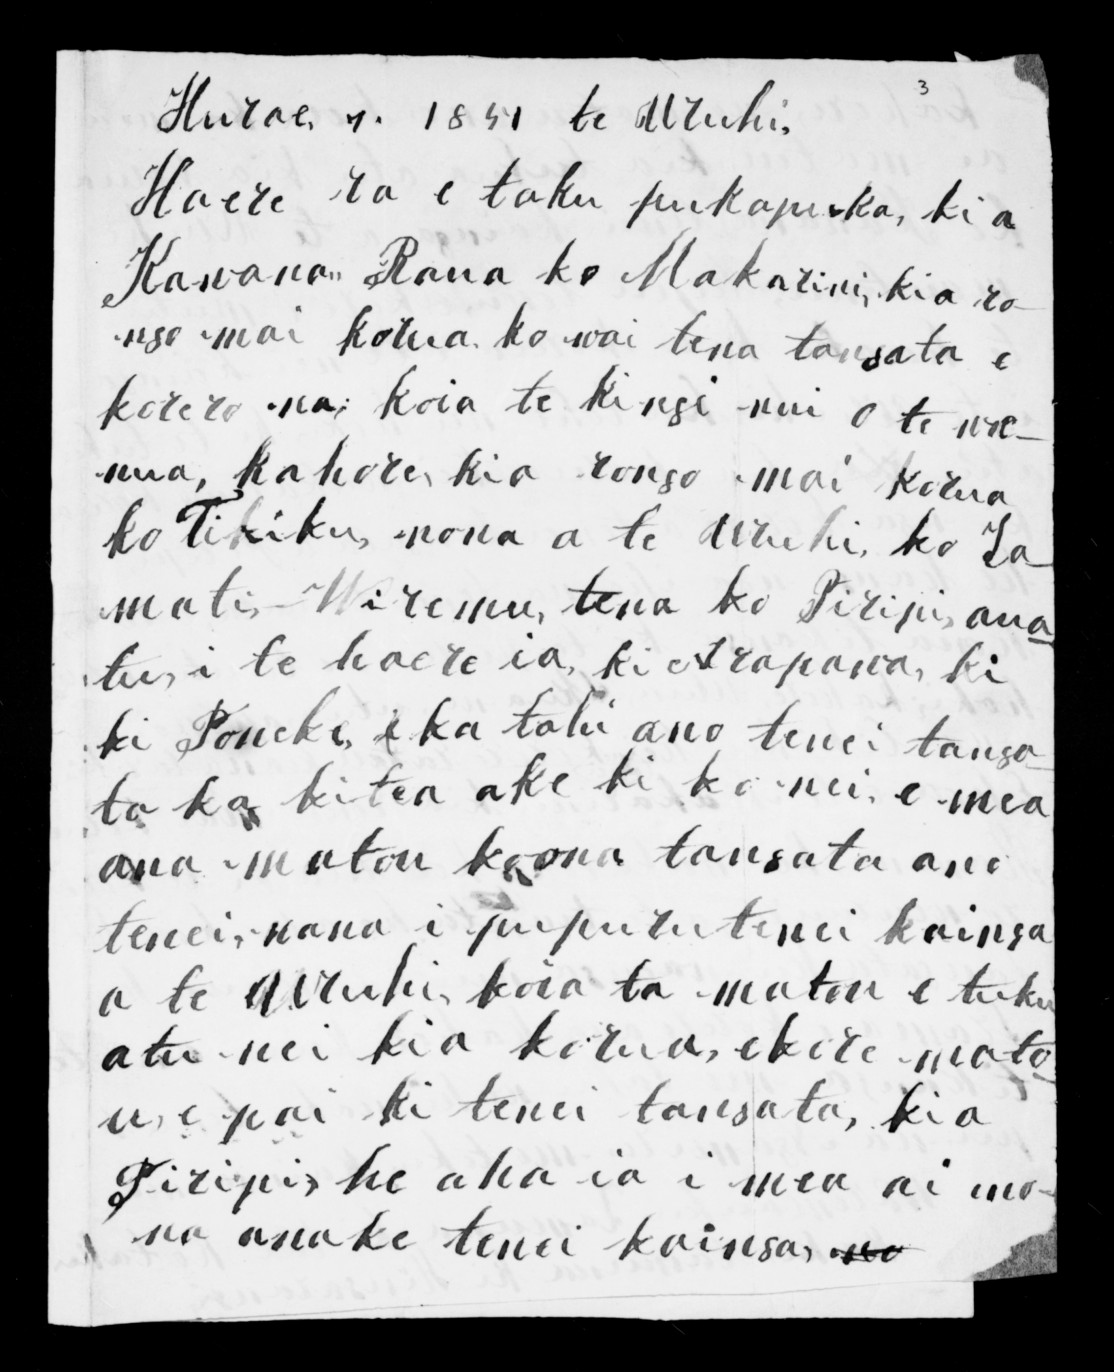 3
Hurae, 7. 1851 te Uruhi,
Haere ra e taku pukapuka, ki a
Kawana,, Raua ko Makarini, kia ro-
ngo mai korua. ko wai tena tangata e
korero na, koia te kingi nui o te we-
nua, kahore, kia rongo mai korua
ko Tikiku, nona a te Uruhi, ko Za-
mati,- Wiremu, tena ko Piripi, ana
tu, i te haere ia, ki Arapawa, ki
ki Poneke, e ka tahi ano tenei tanga-
ta ka kitea ake ki ko nei, e mea
ana matou koona tangata ano
tenei, nana i pupuru tenei kainga
a te Uruhi, koia ta matou e tuku
atu nei kia korua, ekore mato-
u, e pai ki tenei tangata, kia
Piripi, he aha ia i mea ai mo-
na anake tenei kainga, no